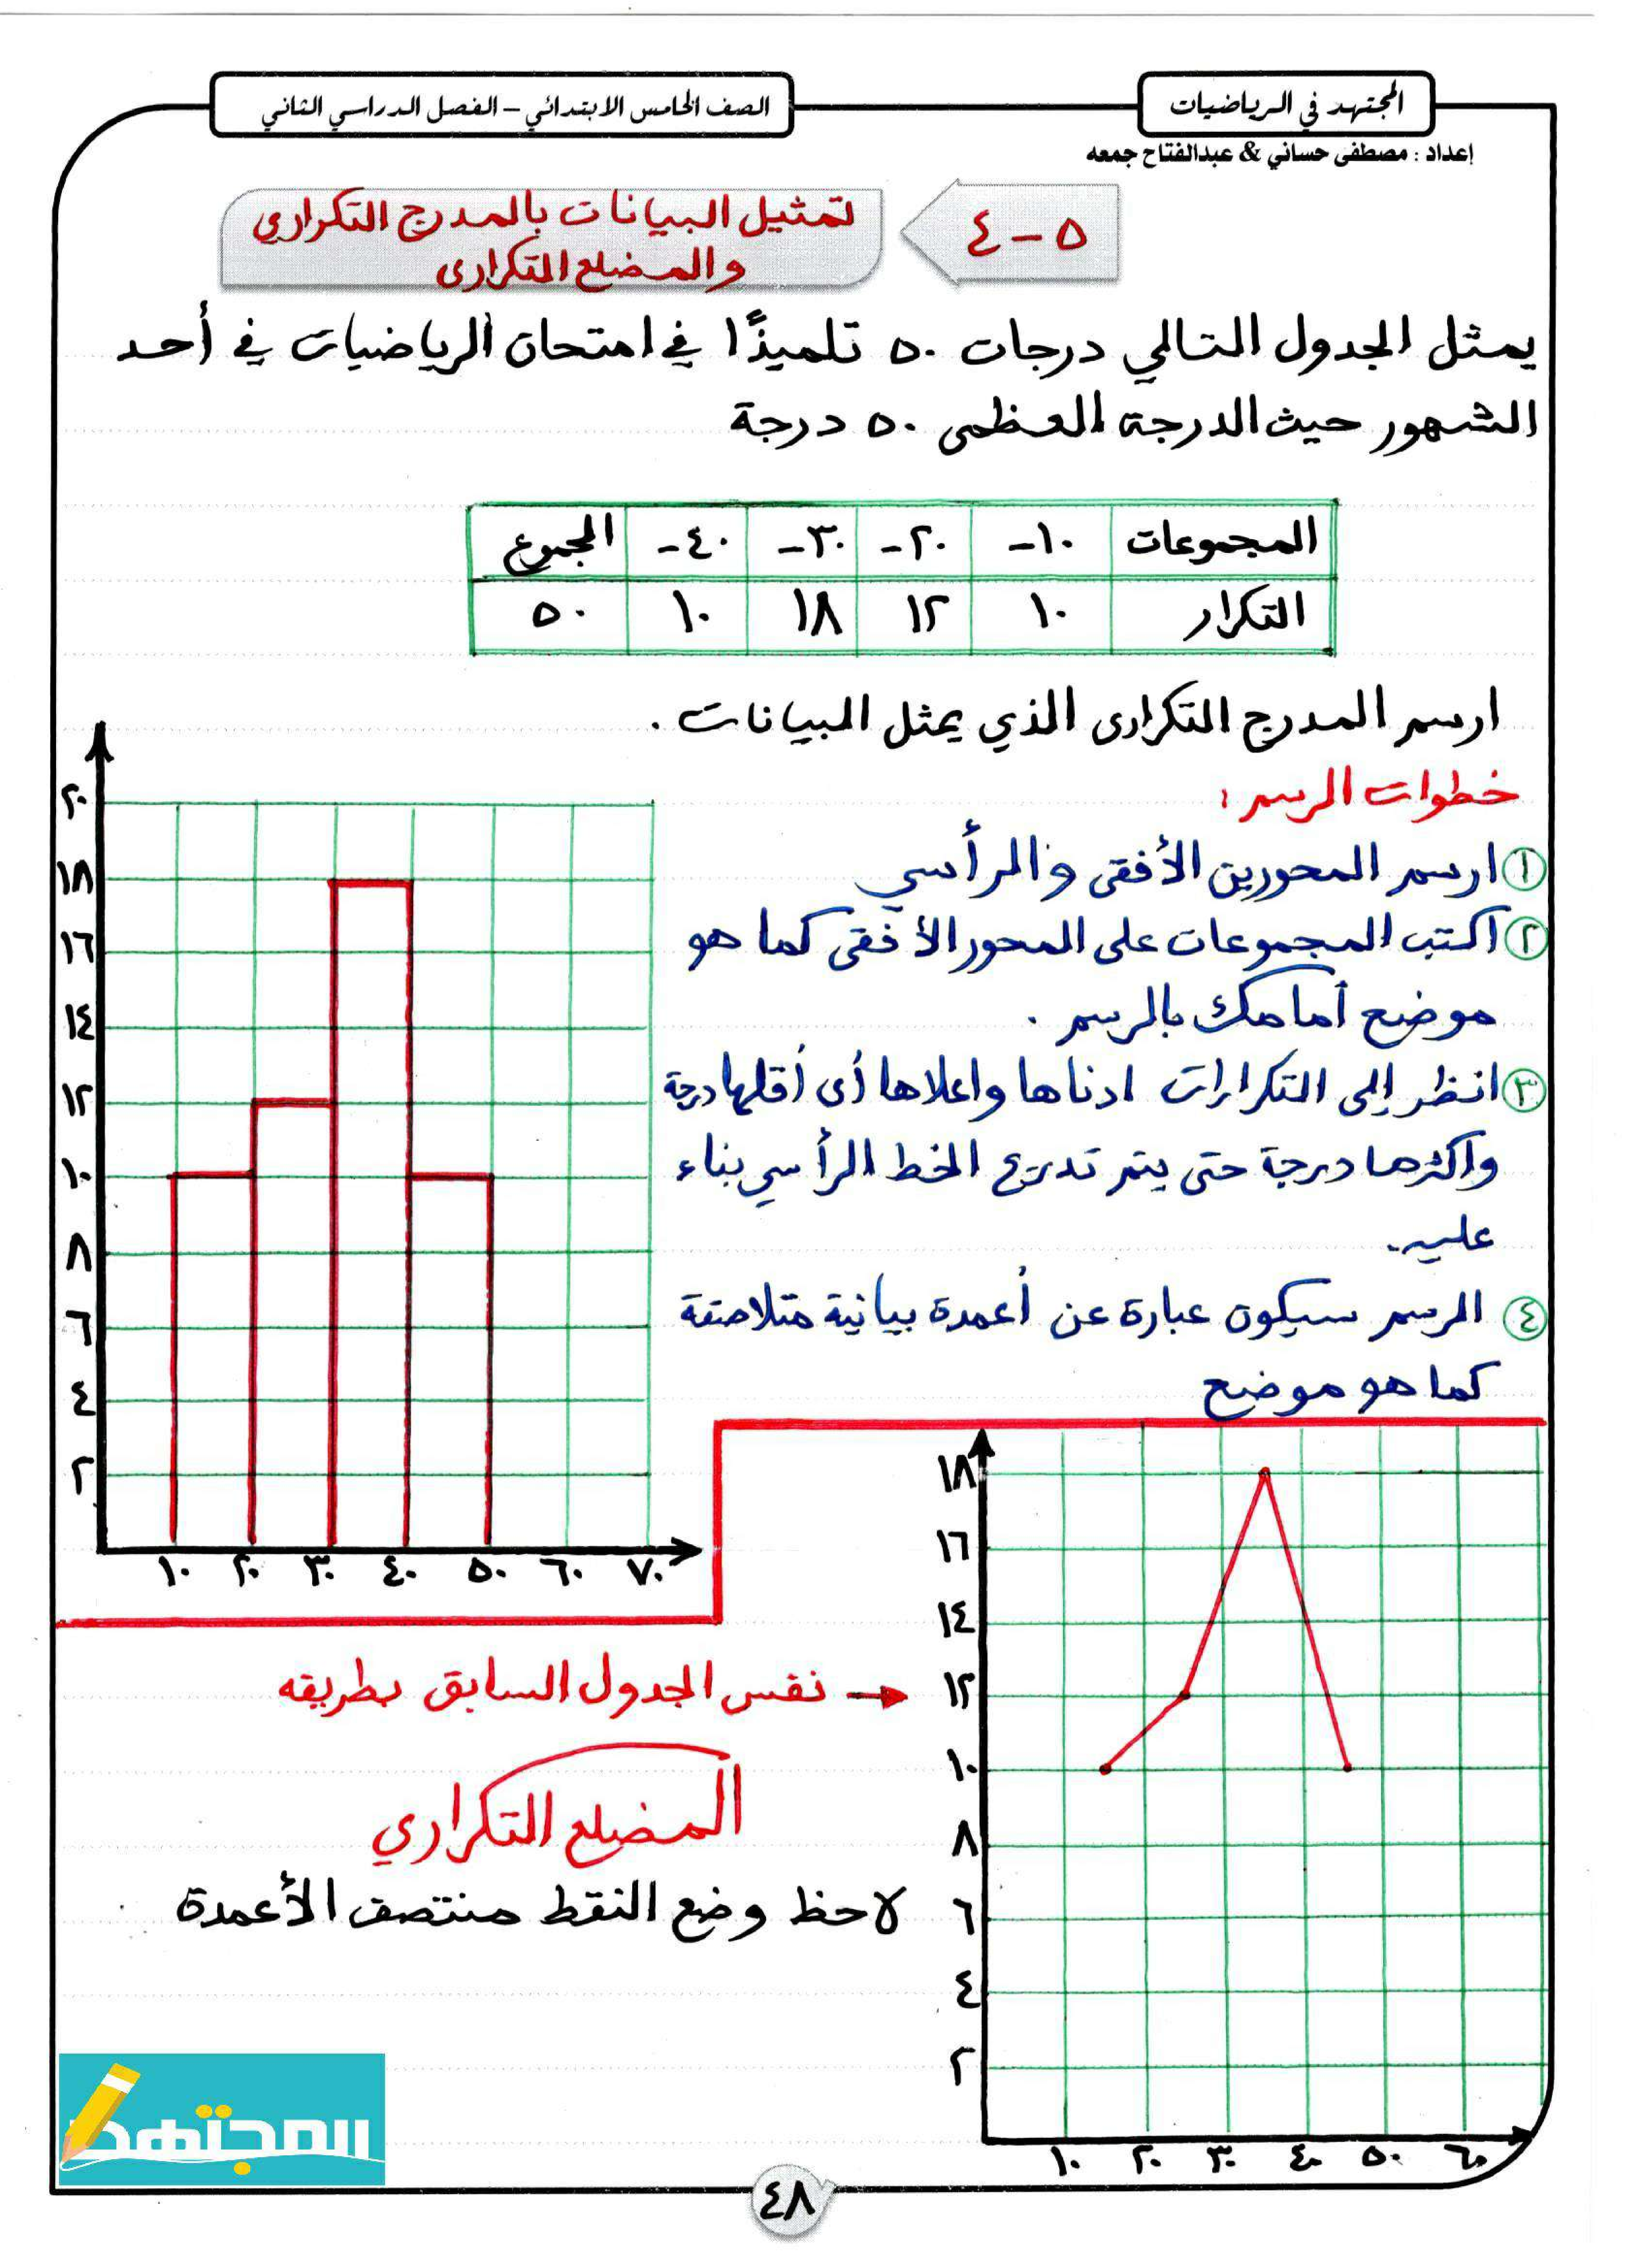 المجتهد في الرياضيات
الصف الخامس الابتدائي – الفصل الدراسي الثاني
إعداد : مصطفى حساني & عبدالفتاح جمعه
٥ - ٤
تمثيل البيانات بالمدرج التكراري
والمضلع التكرارى
يمثل الجدول التالي درجات ٥٠ تلميذًا في امتحان الرياضيات في أحد
الشهور حيث الدرجة العظمى ٥٠ درجة
المجموعات ١٠- ٢٠- ٣٠- ٤٠- المجموع
التكرار ١٠ ١٢ ١٨ ١٠ ٥٠
ارسم المدرج التكرارى الذي يمثل البيانات .
خطوات الرسم :
١ ارسم المحورين الأفقى والرأسي
٢ اكتب المجموعات على المحور الأفقى كما هو
موضع أمامك بالرسم .
٣ انظر إلى التكرارات ادناها واعلاها أى أقلها درجة
واكثرها درجة حتى يتم تدريج الخط الرأسي بناء
عليه.
٤ الرسم سيكون عبارة عن أعمدة بيانية متلاصقة
كما هو موضع
٢٠
١٨
١٦
١٤
١٢
١٠
٨
٦
٤
٢
١٠ ٢٠ ٣٠ ٤٠ ٥٠ ٦٠ ٧٠
١٨
١٦
١٤
١٢
١٠
٨
٦
٤
٢
١٠ ٢٠ ٣٠ ٤٠ ٥٠ ٦٠
نفس الجدول السابق بطريقه
المضلع التكراري
لاحظ وضع النقط منتصف الأعمدة
المجتهد
٤٨